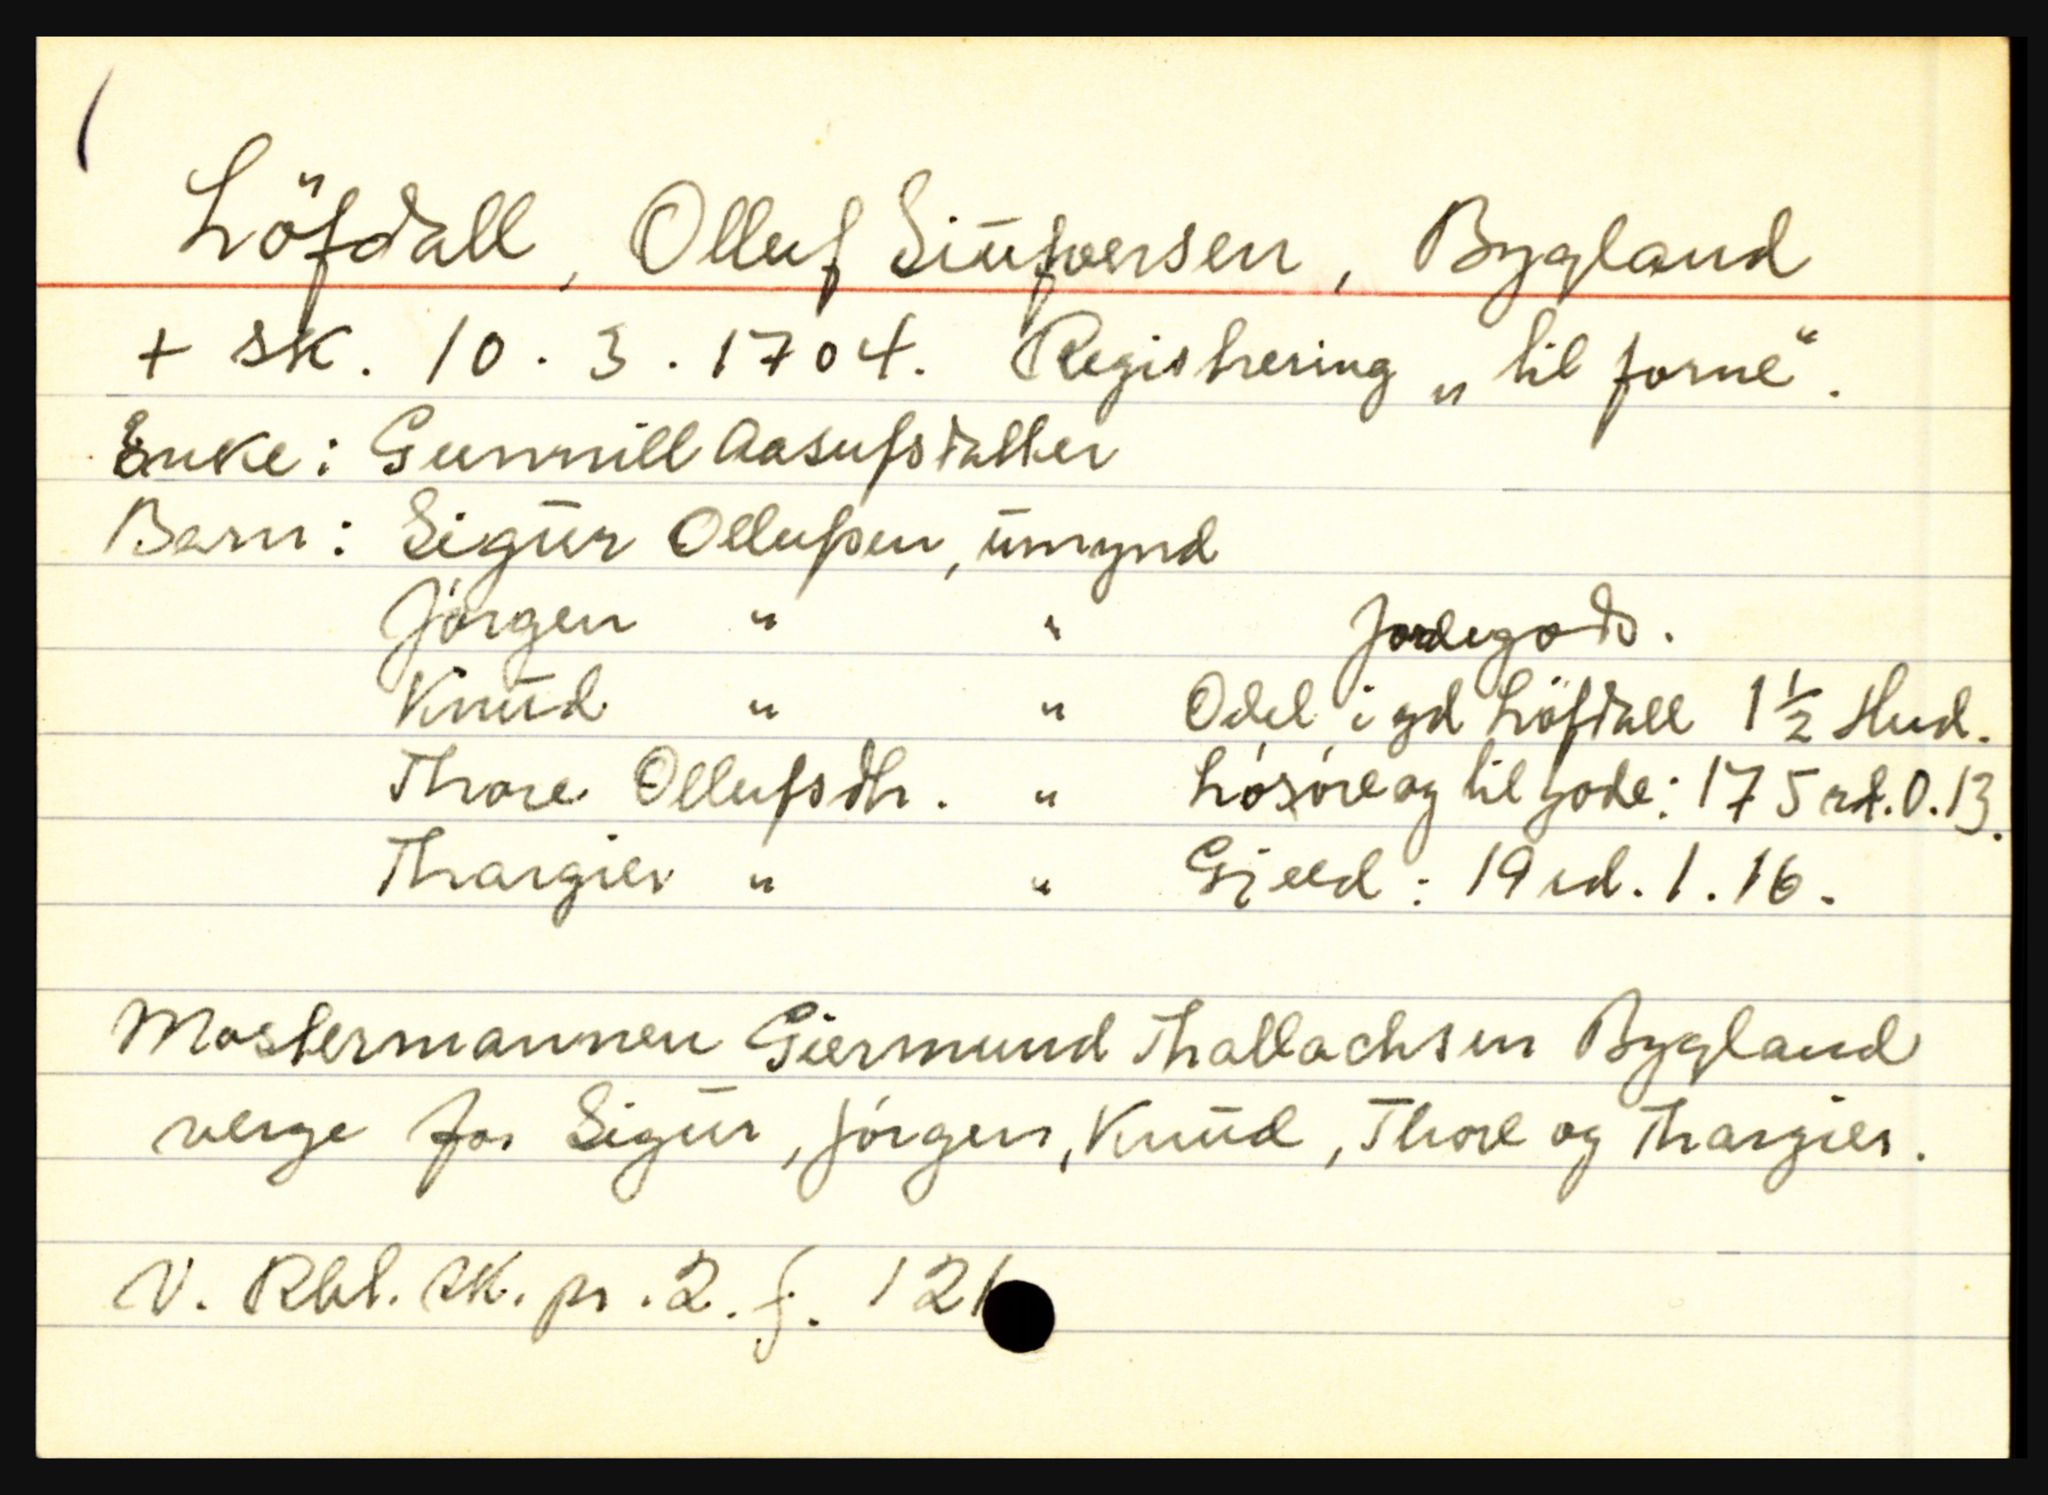 Löfdall, Olluf Siúfversen, Bygland
+ sk. 10. 3. 1704. Registrering „til forne“.
Enke: Gunnill Aasufsdatter
Barn: Sigūr Ollufsen, ūmynd
Jörgen " " Jordegods.
Knūd " " Odel i gd Löfdall 1½ Hud.
Thore Ollufsdtr. " Lösöre og tilgode: 175 rd. 0. 13.
Thargier " " Gjeld: 19 rd. 1. 16.
Mostermannen Giermund Thallachsen Bygland
verge for Sigūr, Jörgen, Knūd, Thore og Thargier.
V. Rbl. sk. pr. 2. f. 121